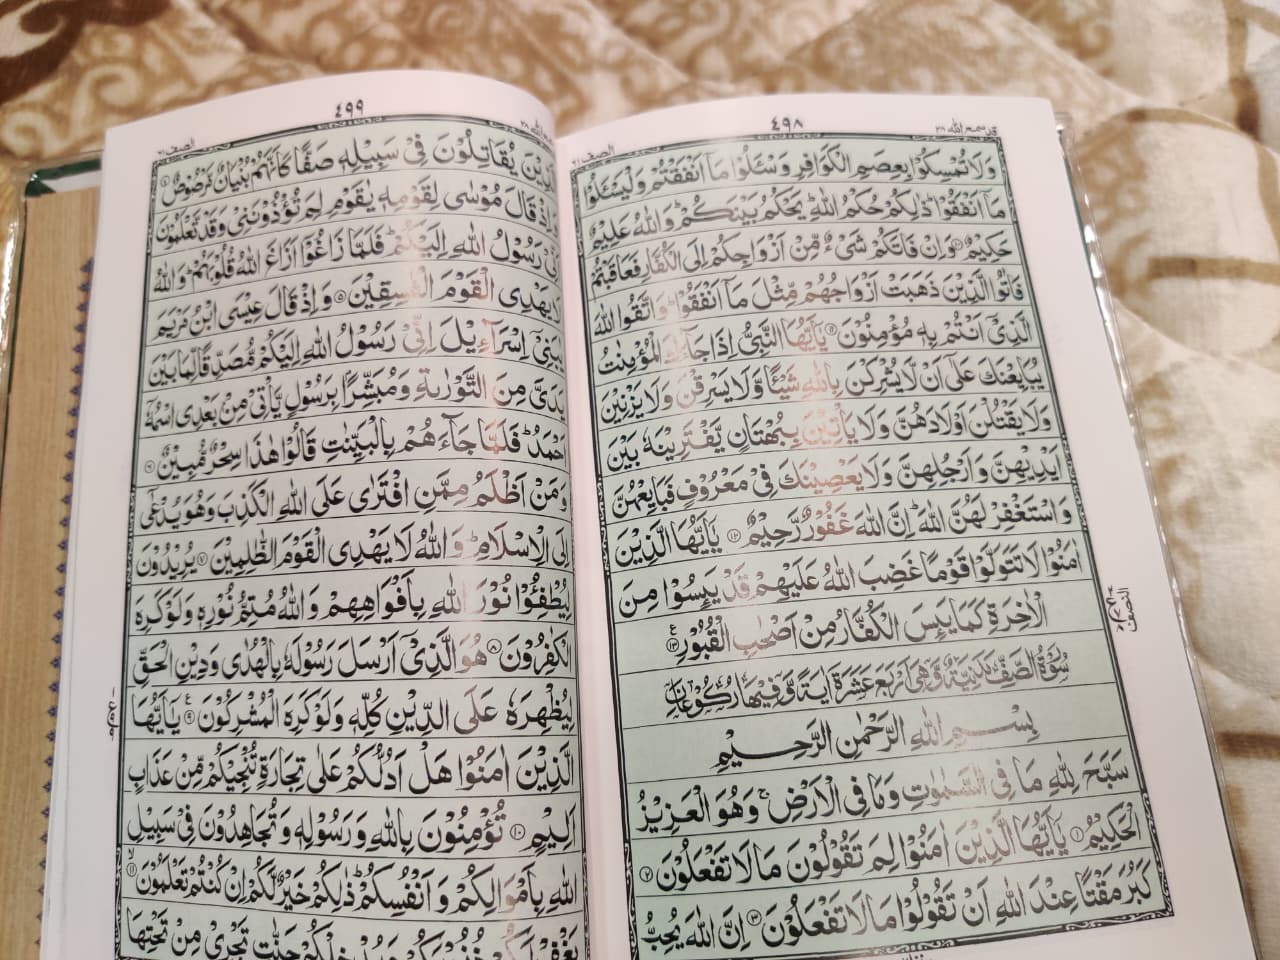 ٤٩٨
قد سمع الله ٢٨
الصف ٦١
وَلَا تُمْسِكُوْا بِعِصَمِ الْكَوَافِرِ وَسْـَٔلُوْا مَاۤ اَنْفَقْتُمْ وَلْيَسْـَٔلُوْا
مَاۤ اَنْفَقُوْا ؕ ذٰلِكُمْ حُكْمُ اللّٰهِ ؕ يَحْكُمُ بَيْنَكُمْ ؕ وَاللّٰهُ عَلِيْمٌ
حَكِيْمٌ ۱۰ وَاِنْ فَاتَكُمْ شَىْءٌ مِّنْ اَزْوَاجِكُمْ اِلَى الْكُفَّارِ فَعَاقَبْتُمْ
فَاٰتُوا الَّذِيْنَ ذَهَبَتْ اَزْوَاجُهُمْ مِّثْلَ مَاۤ اَنْفَقُوْا ؕ وَاتَّقُوا اللّٰهَ
الَّذِىْۤ اَنْتُمْ بِهٖ مُؤْمِنُوْنَ ۱۱ يٰۤاَيُّهَا النَّبِىُّ اِذَا جَآءَكَ الْمُؤْمِنٰتُ
يُبَايِعْنَكَ عَلٰٓى اَنْ لَّا يُشْرِكْنَ بِاللّٰهِ شَيْـًٔا وَّلَا يَسْرِقْنَ وَلَا يَزْنِيْنَ
وَلَا يَقْتُلْنَ اَوْلَادَهُنَّ وَلَا يَاْتِيْنَ بِبُهْتَانٍ يَّفْتَرِيْنَهٗ بَيْنَ
اَيْدِيْهِنَّ وَاَرْجُلِهِنَّ وَلَا يَعْصِيْنَكَ فِىْ مَعْرُوْفٍ فَبَايِعْهُنَّ
وَاسْتَغْفِرْ لَهُنَّ اللّٰهَ ؕ اِنَّ اللّٰهَ غَفُوْرٌ رَّحِيْمٌ ۱۲ يٰۤاَيُّهَا الَّذِيْنَ
اٰمَنُوْا لَا تَتَوَلَّوْا قَوْمًا غَضِبَ اللّٰهُ عَلَيْهِمْ قَدْ يَئِسُوْا مِنَ
الْاٰخِرَةِ كَمَا يَئِسَ الْكُفَّارُ مِنْ اَصْحٰبِ الْقُبُوْرِ ۱۳
سُوْرَةُ الصَّفِّ مَدَنِيَّةٌ وَّهِىَ اَرْبَعَ عَشَرَةَ اٰيَةً وَّفِيْهَا رُكُوْعَانِ
بِسْـــمِ اللّٰهِ الرَّحْمٰنِ الرَّحِـــيْمِ
سَبَّحَ لِلّٰهِ مَا فِى السَّمٰوٰتِ وَمَا فِى الْاَرْضِ ۚ وَهُوَ الْعَزِيْزُ
الْحَكِيْمُ ۱ يٰۤاَيُّهَا الَّذِيْنَ اٰمَنُوْا لِمَ تَقُوْلُوْنَ مَا لَا تَفْعَلُوْنَ ۲
كَبُرَ مَقْتًا عِنْدَ اللّٰهِ اَنْ تَقُوْلُوْا مَا لَا تَفْعَلُوْنَ ۳ اِنَّ اللّٰهَ يُحِبُّ
٤٩٩
الصف ٦١
الَّذِيْنَ يُقَاتِلُوْنَ فِىْ سَبِيْلِهٖ صَفًّا كَاَنَّهُمْ بُنْيَانٌ مَّرْصُوْصٌ ۴
وَاِذْ قَالَ مُوْسٰى لِقَوْمِهٖ يٰقَوْمِ لِمَ تُؤْذُوْنَنِىْ وَقَدْ تَّعْلَمُوْنَ
اَنِّىْ رَسُوْلُ اللّٰهِ اِلَيْكُمْ ؕ فَلَمَّا زَاغُوْۤا اَزَاغَ اللّٰهُ قُلُوْبَهُمْ ؕ وَاللّٰهُ
لَا يَهْدِى الْقَوْمَ الْفٰسِقِيْنَ ۵ وَاِذْ قَالَ عِيْسَى ابْنُ مَرْيَمَ
يٰبَنِىْۤ اِسْرَآءِيْلَ اِنِّىْ رَسُوْلُ اللّٰهِ اِلَيْكُمْ مُّصَدِّقًا لِّمَا بَيْنَ
يَدَىَّ مِنَ التَّوْرٰىةِ وَمُبَشِّرًا بِرَسُوْلٍ يَّاْتِىْ مِنْ بَعْدِى اسْمُهٗۤ
اَحْمَدُ ؕ فَلَمَّا جَآءَهُمْ بِالْبَيِّنٰتِ قَالُوْا هٰذَا سِحْرٌ مُّبِيْنٌ ۶
وَمَنْ اَظْلَمُ مِمَّنِ افْتَرٰى عَلَى اللّٰهِ الْكَذِبَ وَهُوَ يُدْعٰۤى
اِلَى الْاِسْلَامِ ؕ وَاللّٰهُ لَا يَهْدِى الْقَوْمَ الظّٰلِمِيْنَ ۷ يُرِيْدُوْنَ
لِيُطْفِـُٔوْا نُوْرَ اللّٰهِ بِاَفْوَاهِهِمْ وَاللّٰهُ مُتِمُّ نُوْرِهٖ وَلَوْ كَرِهَ
الْكٰفِرُوْنَ ۸ هُوَ الَّذِىْۤ اَرْسَلَ رَسُوْلَهٗ بِالْهُدٰى وَدِيْنِ الْحَقِّ
لِيُظْهِرَهٗ عَلَى الدِّيْنِ كُلِّهٖ وَلَوْ كَرِهَ الْمُشْرِكُوْنَ ۹ يٰۤاَيُّهَا
الَّذِيْنَ اٰمَنُوْا هَلْ اَدُلُّكُمْ عَلٰى تِجَارَةٍ تُنْجِيْكُمْ مِّنْ عَذَابٍ
اَلِيْمٍ ۱۰ تُؤْمِنُوْنَ بِاللّٰهِ وَرَسُوْلِهٖ وَتُجَاهِدُوْنَ فِىْ سَبِيْلِ
اللّٰهِ بِاَمْوَالِكُمْ وَاَنْفُسِكُمْ ؕ ذٰلِكُمْ خَيْرٌ لَّكُمْ اِنْ كُنْتُمْ تَعْلَمُوْنَ ۱۱
يَغْفِرْ لَكُمْ ذُنُوْبَكُمْ وَيُدْخِلْكُمْ جَنّٰتٍ تَجْرِىْ مِنْ تَحْتِهَا